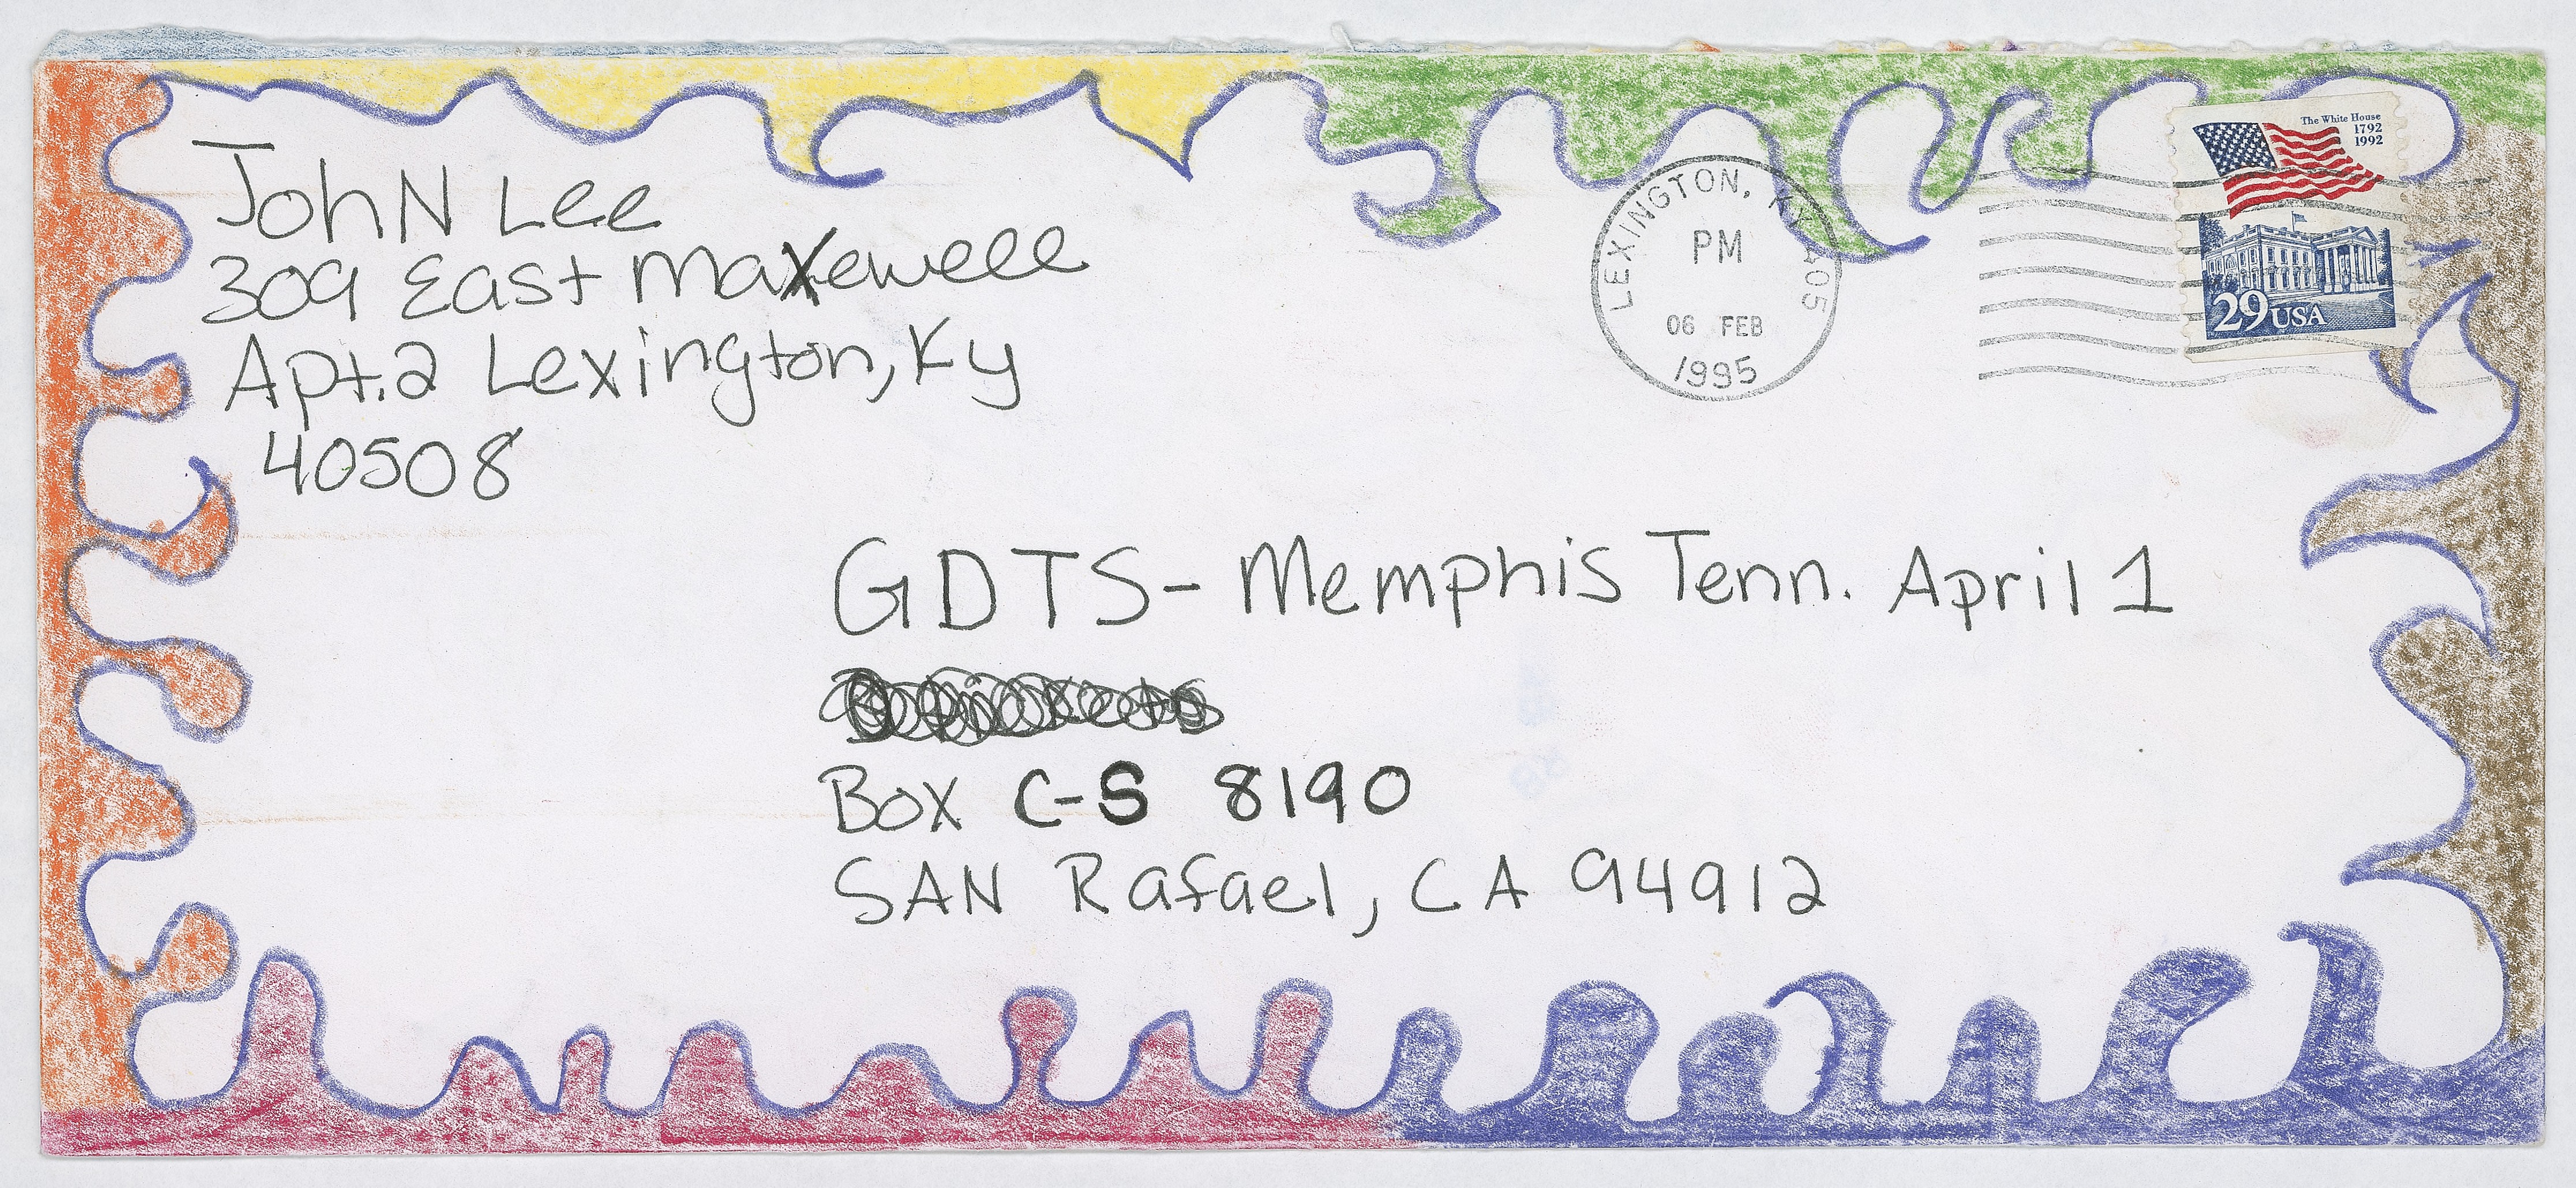 John Lee
309 East Maxewell
Apt. 2 Lexington, Ky
40508
LEXINGTON, KY 405
PM
06 FEB
1995
The White House
1792
1992
29 USA
GDTS - Memphis Tenn. April 1
Box C-S 8190
SAN Rafael, CA 94912